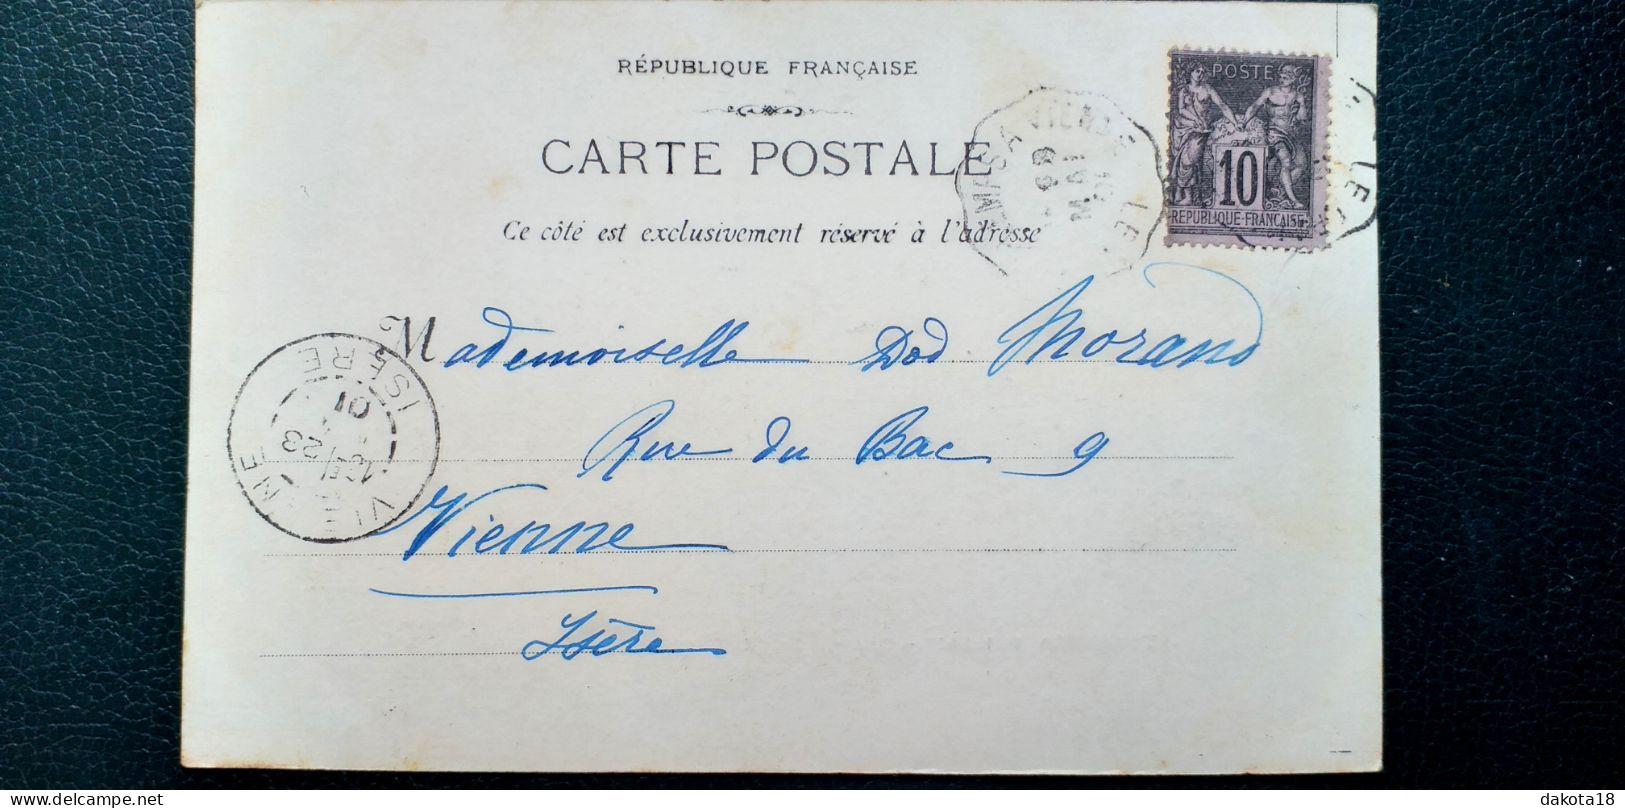 RÉPUBLIQUE FRANÇAISE
CARTE POSTALE
Ce côté est exclusivement réservé à l'adresse
POSTE
10
REPUBLIQUE-FRANÇAISE
Mademoiselle Dod Morand
Rue du Bac 9
Vienne
Isère
ISERE
01
23
delcampe.net
dakota18